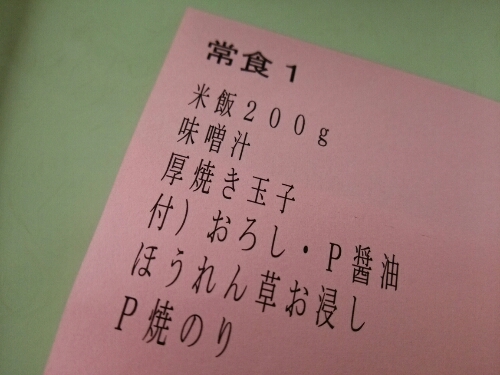 常食１
米飯２００ｇ
味噌汁
厚焼き玉子
付）おろし・Ｐ醤油
ほうれん草お浸し
Ｐ焼のり